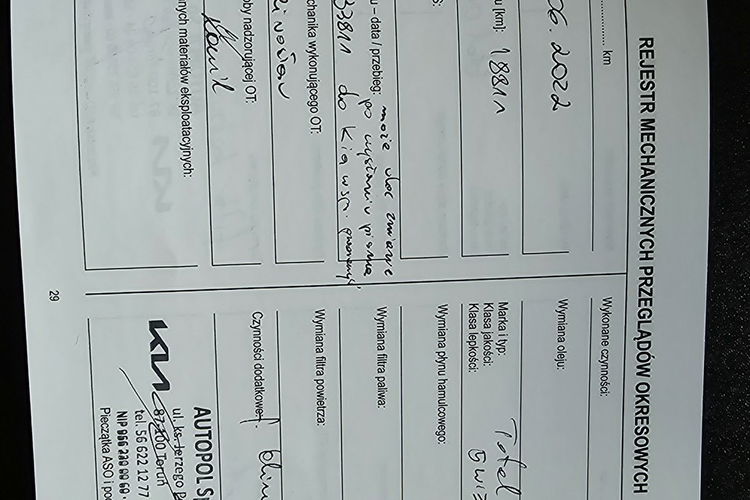 REJESTR MECHANICZNYCH PRZEGLĄDÓW OKRESOWYCH
km
06. 2022
u [km]: 18811
u – data / przebieg: może ulec zmianie
po wysłaniu pisma
33811 do Kia w sp. gwarancji
chanika wykonującego OT:
by nadzorującej OT:
Kamil
nych materiałów eksploatacyjnych:
Wykonane czynności:
Wymiana oleju:
Marka i typ: Total
Klasa jakości:
Klasa lepkości: 5W3
Wymiana płynu hamulcowego:
Wymiana filtra paliwa:
Wymiana filtra powietrza:
Czynności dodatkowe:
KIA
AUTOPOL S
ul. ks. Jerzego P
87-100 Toruń
tel. 56 622 12 77
NIP 956 230 00 69
Pieczątka ASO i po
29